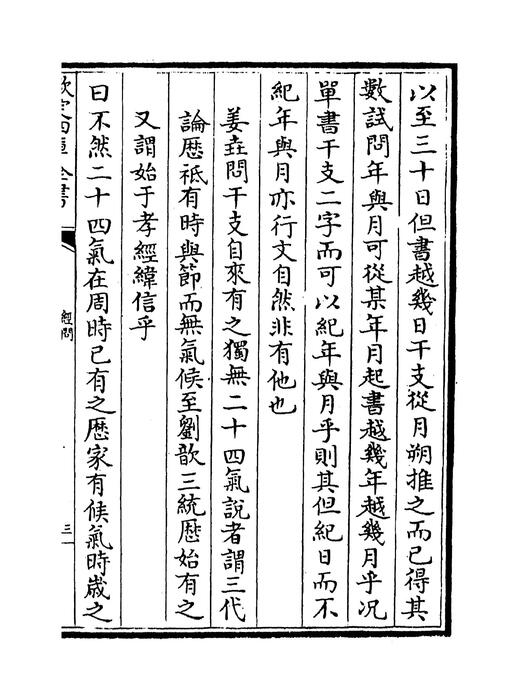 以至三十日但書越幾日干支從月朔推之而已得其
數試問年與月可從某年月起書越幾年越幾月乎况
單書干支二字而可以紀年與月乎則其但紀日而不
紀年與月亦行文自然非有他也
姜垚問干支自來有之獨無二十四氣說者謂三代
論歴祗有時與節而無氣候至劉歆三統歴始有之
又謂始于孝經緯信乎
曰不然二十四氣在周時已有之歴家有候氣時歲之
欽定四庫全書
經問